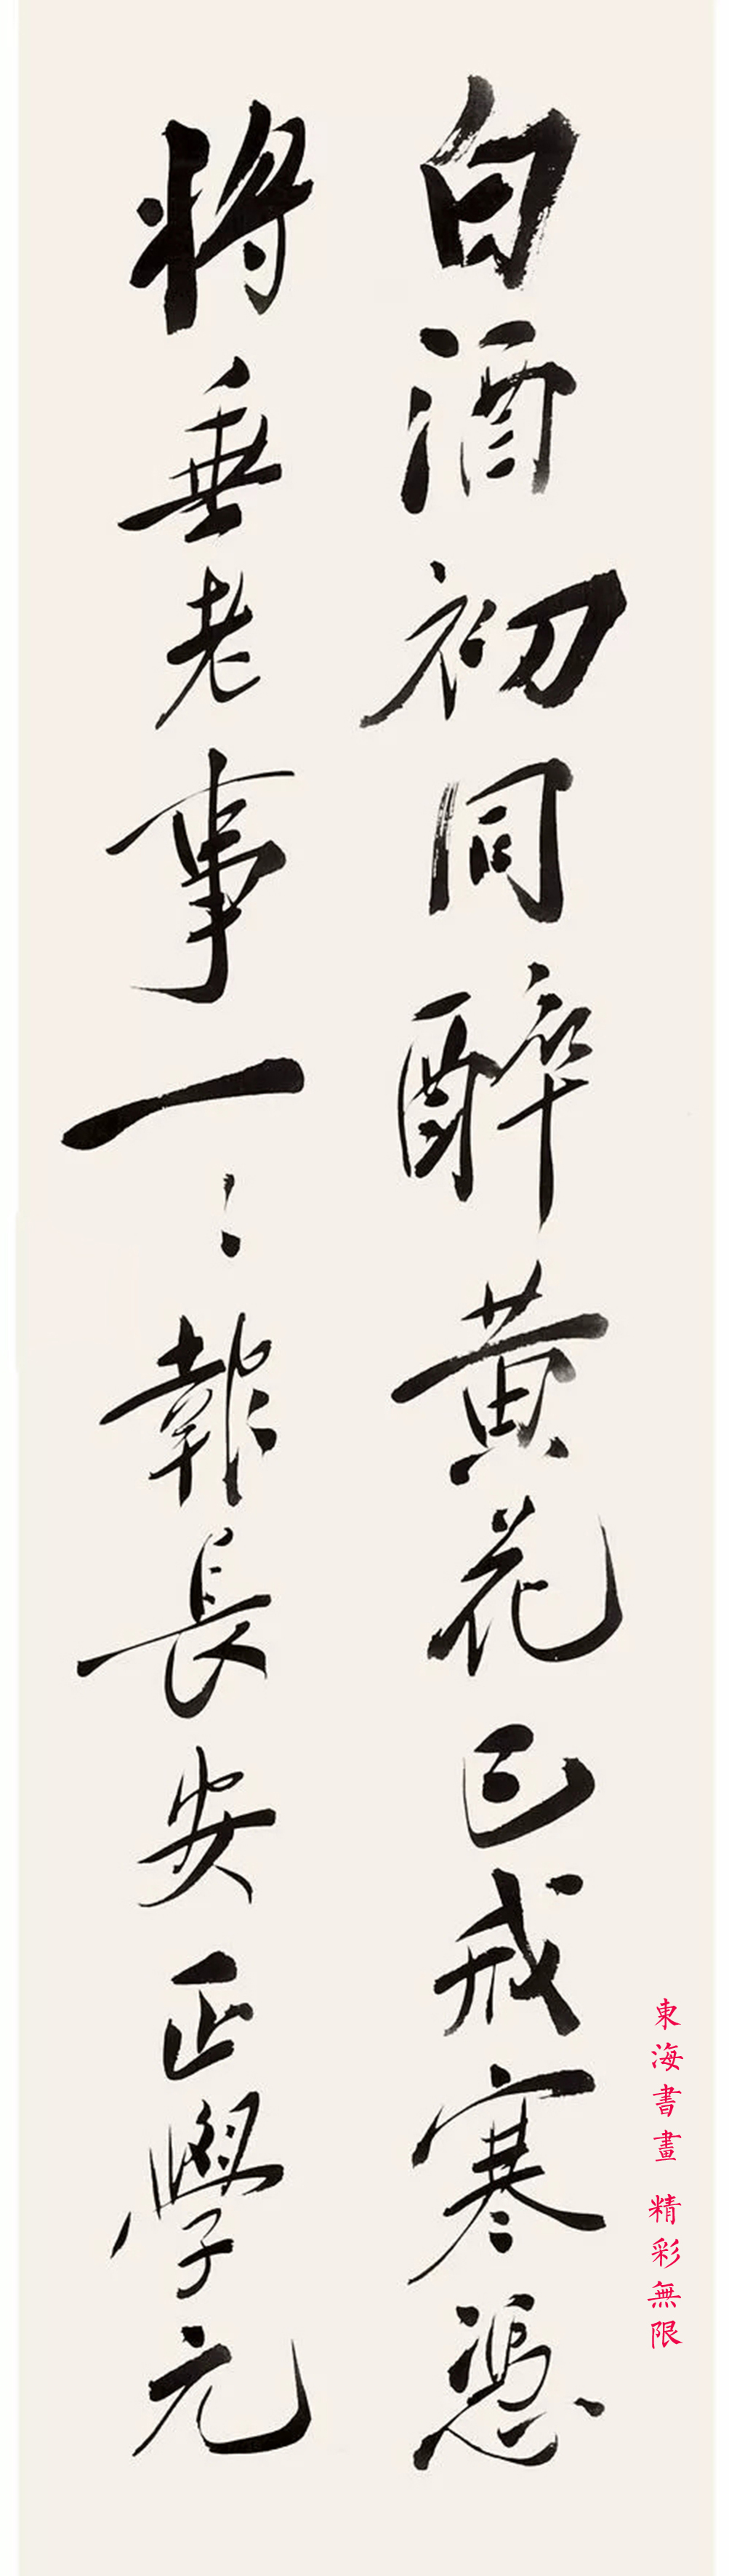 白酒初同醉黄花已戒寒憑
将垂老事一〻報長安正學元
東海書畫 精彩無限